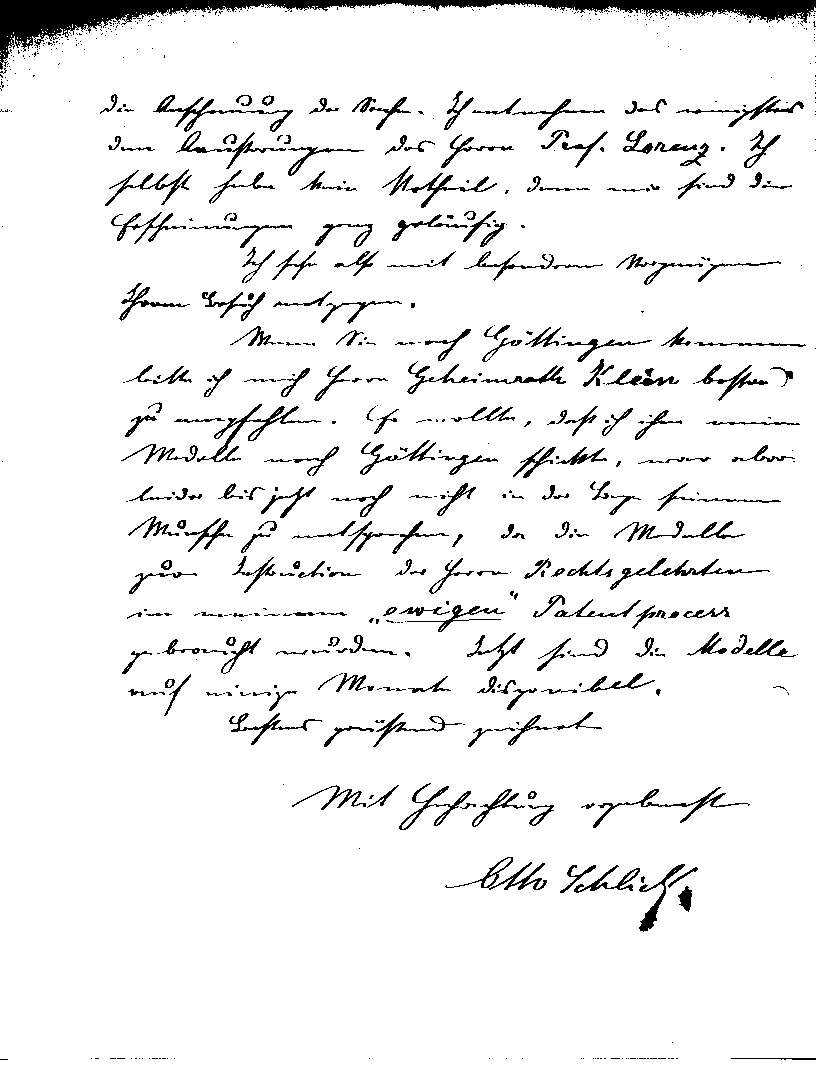 die Anschauung der Sache. Ich entnehme das wenigstens
den Äusserungen des Herrn Prof. Lorenz. Ich
selbst habe kein Urtheil, denn mir sind die
Erscheinungen ganz geläufig.
Ich sehe also mit besonderem Vergnügen
Ihrem Besuch entgegen.
Wenn Sie nach Göttingen kommen
bitte ich mich Herrn Geheimrath Klein bestens
zu empfehlen. Er wollte, dass ich ihm meine
Modelle nach Göttingen schickte, war aber
leider bis jetzt noch nicht in der Lage seinem
Wunsche zu entsprechen, da die Modelle
zur Instruction der Herren Rechtsgelehrten
in meinem „ewigen" Patentprocess
gebraucht wurden. Jetzt sind die Modelle
auf einige Monate disponibel.
Bestens grüssend zeichnet
Mit Hochachtung ergebenst
Otto Schlick.